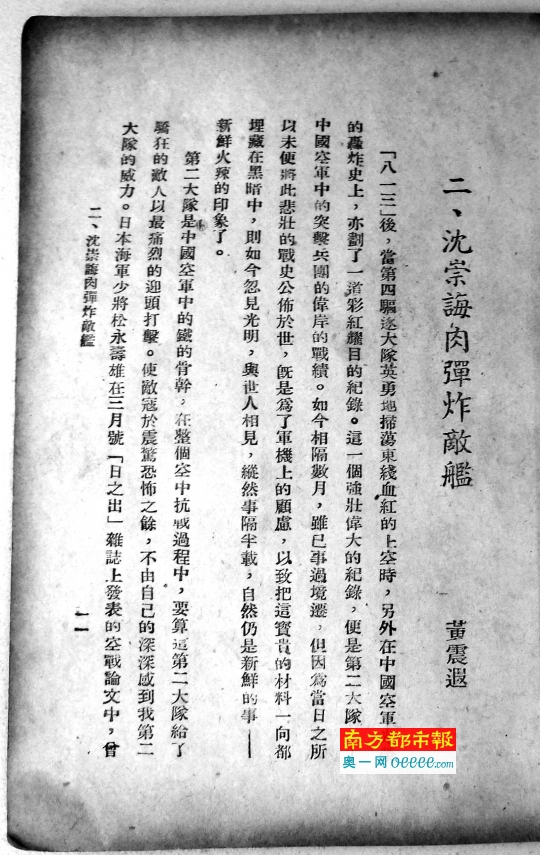 二、沈崇誨肉彈炸敵艦
黃震遐
「八一三」後，當第四驅逐大隊英勇地掃蕩東綫血紅的上空時，另外在中國空軍
的轟炸史上，亦劃了一道彩紅耀目的紀錄。這一個強壯偉大的紀錄，便是第二大隊
中國空軍中的突擊兵團的偉岸的戰績。如今相隔數月，雖已事過境遷，但因爲當日之所
以未便將此悲壯的戰史公佈於世，旣是爲了軍機上的顧慮，以致把這寳貴的材料一向都
埋藏在黑暗中，則如今忽見光明，與世人相見，縱然事隔半載，自然仍是新鮮的事——
新鮮火辣的印象了。
第二大隊是中國空軍中的鐵的骨幹，在整個空中抗戰過程中，要算這第二大隊給了
驕狂的敵人以最痛烈的迎頭打擊。使敵寇於震驚恐怖之餘，不由自己的深深感到我第二
大隊的威力。日本海軍少將松永壽雄在三月號「日之出」雜誌上發表的空戰論文中，曾
二、沈崇誨肉彈炸敵艦
一一
南方都市報
奥一网oeeee.com